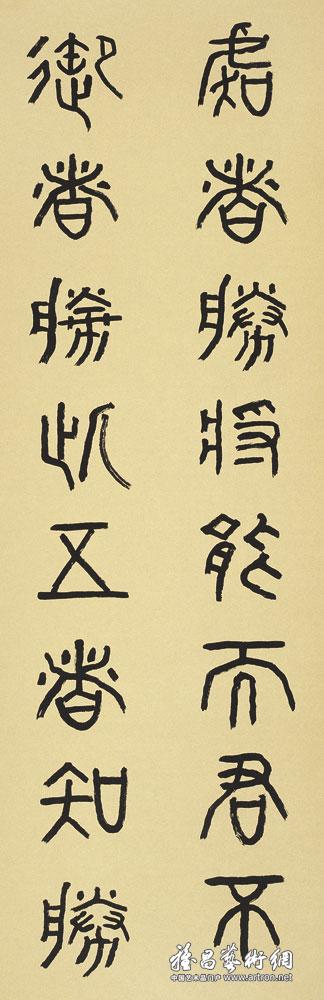 虞者勝將能而君不
御者勝此五者知勝
雅昌藝術網
中国艺术品门户 www.artron.net